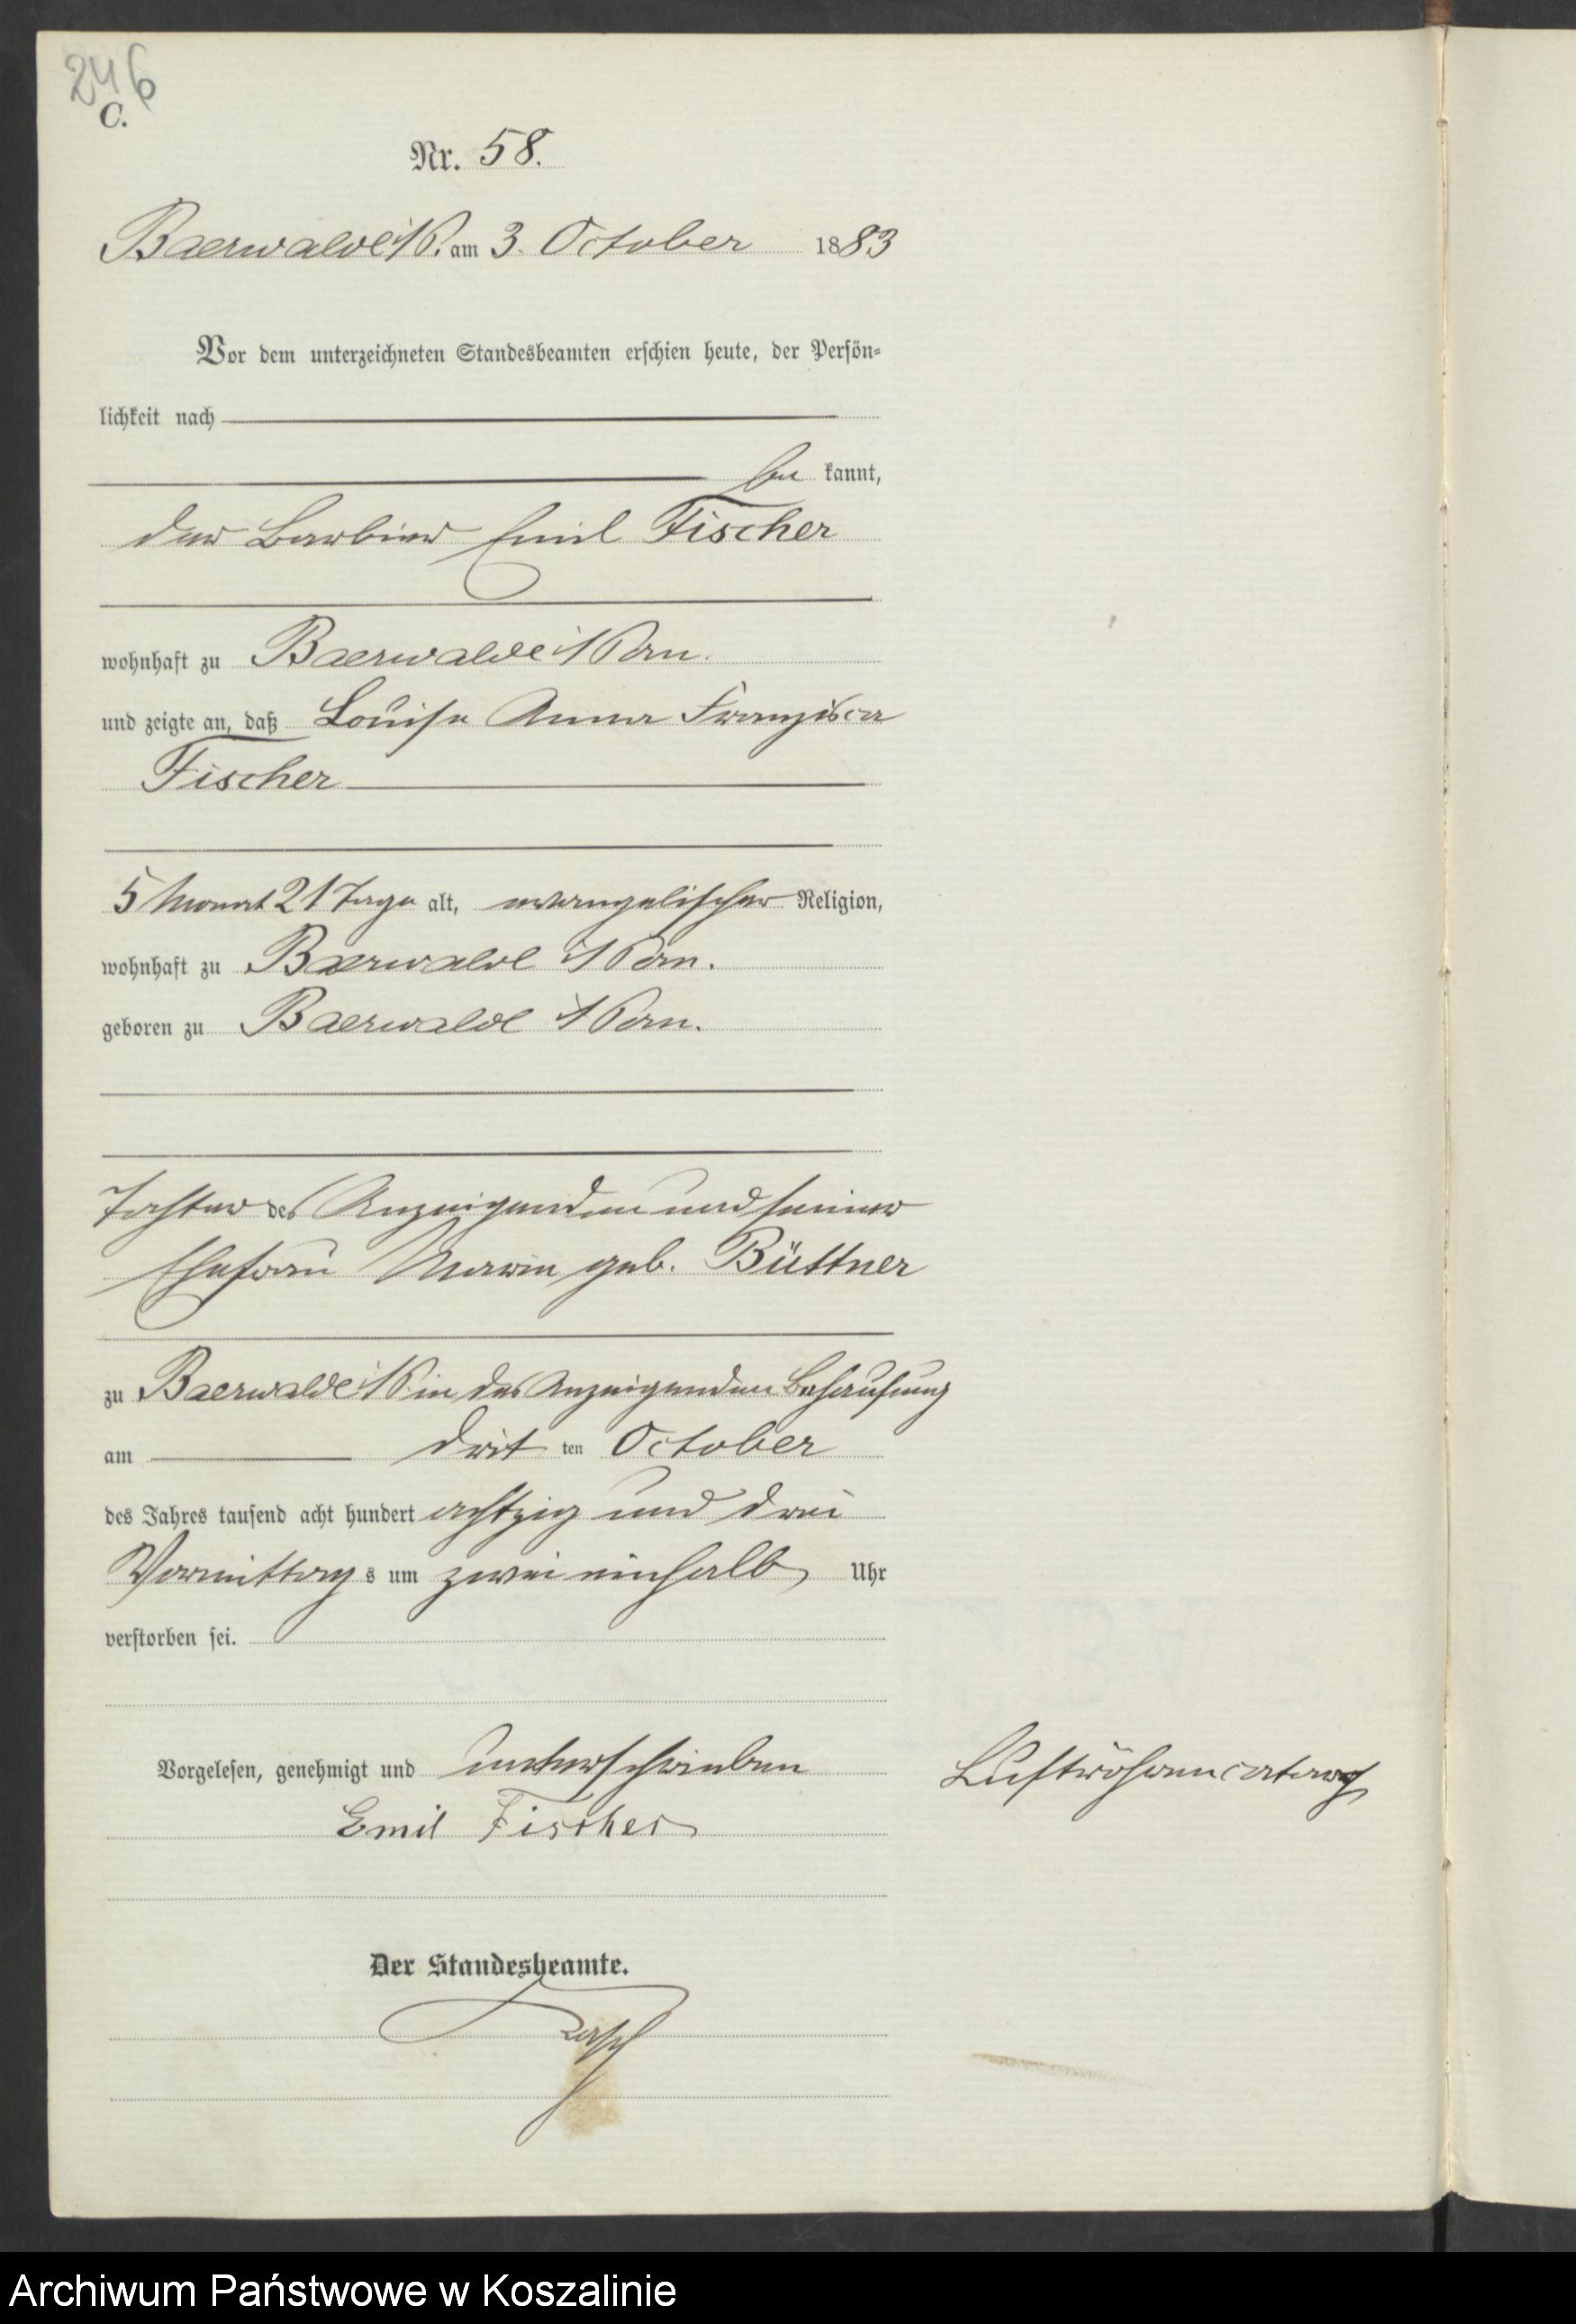 246
C.
Nr. 58.
Baerwalde i/P. am 3. October 1883
Vor dem unterzeichneten Standesbeamten erschien heute, der Persön-
lichkeit nach
be kannt,
der Barbier Emil Fischer
wohnhaft zu Baerwalde i/Pom.
und zeigte an, daß Louise Anna Franzisca
Fischer
5 Monat 21 Tage alt, evangelischer Religion,
wohnhaft zu Baerwalde i/Pom.
geboren zu Baerwalde i/Pom.
Tochter des Anzeigenden und seiner
Ehefrau Marie geb. Büttner
zu Baerwalde i/P. in des Anzeigenden Behausung
am drit ten October
des Jahres tausend acht hundert achtzig und drei
Vormittag s um zwei einhalb Uhr
verstorben sei.
Vorgelesen, genehmigt und unterschrieben
Luftröhrencatarrh
Emil Fischer
Der Standesbeamte.
Archiwum Państwowe w Koszalinie